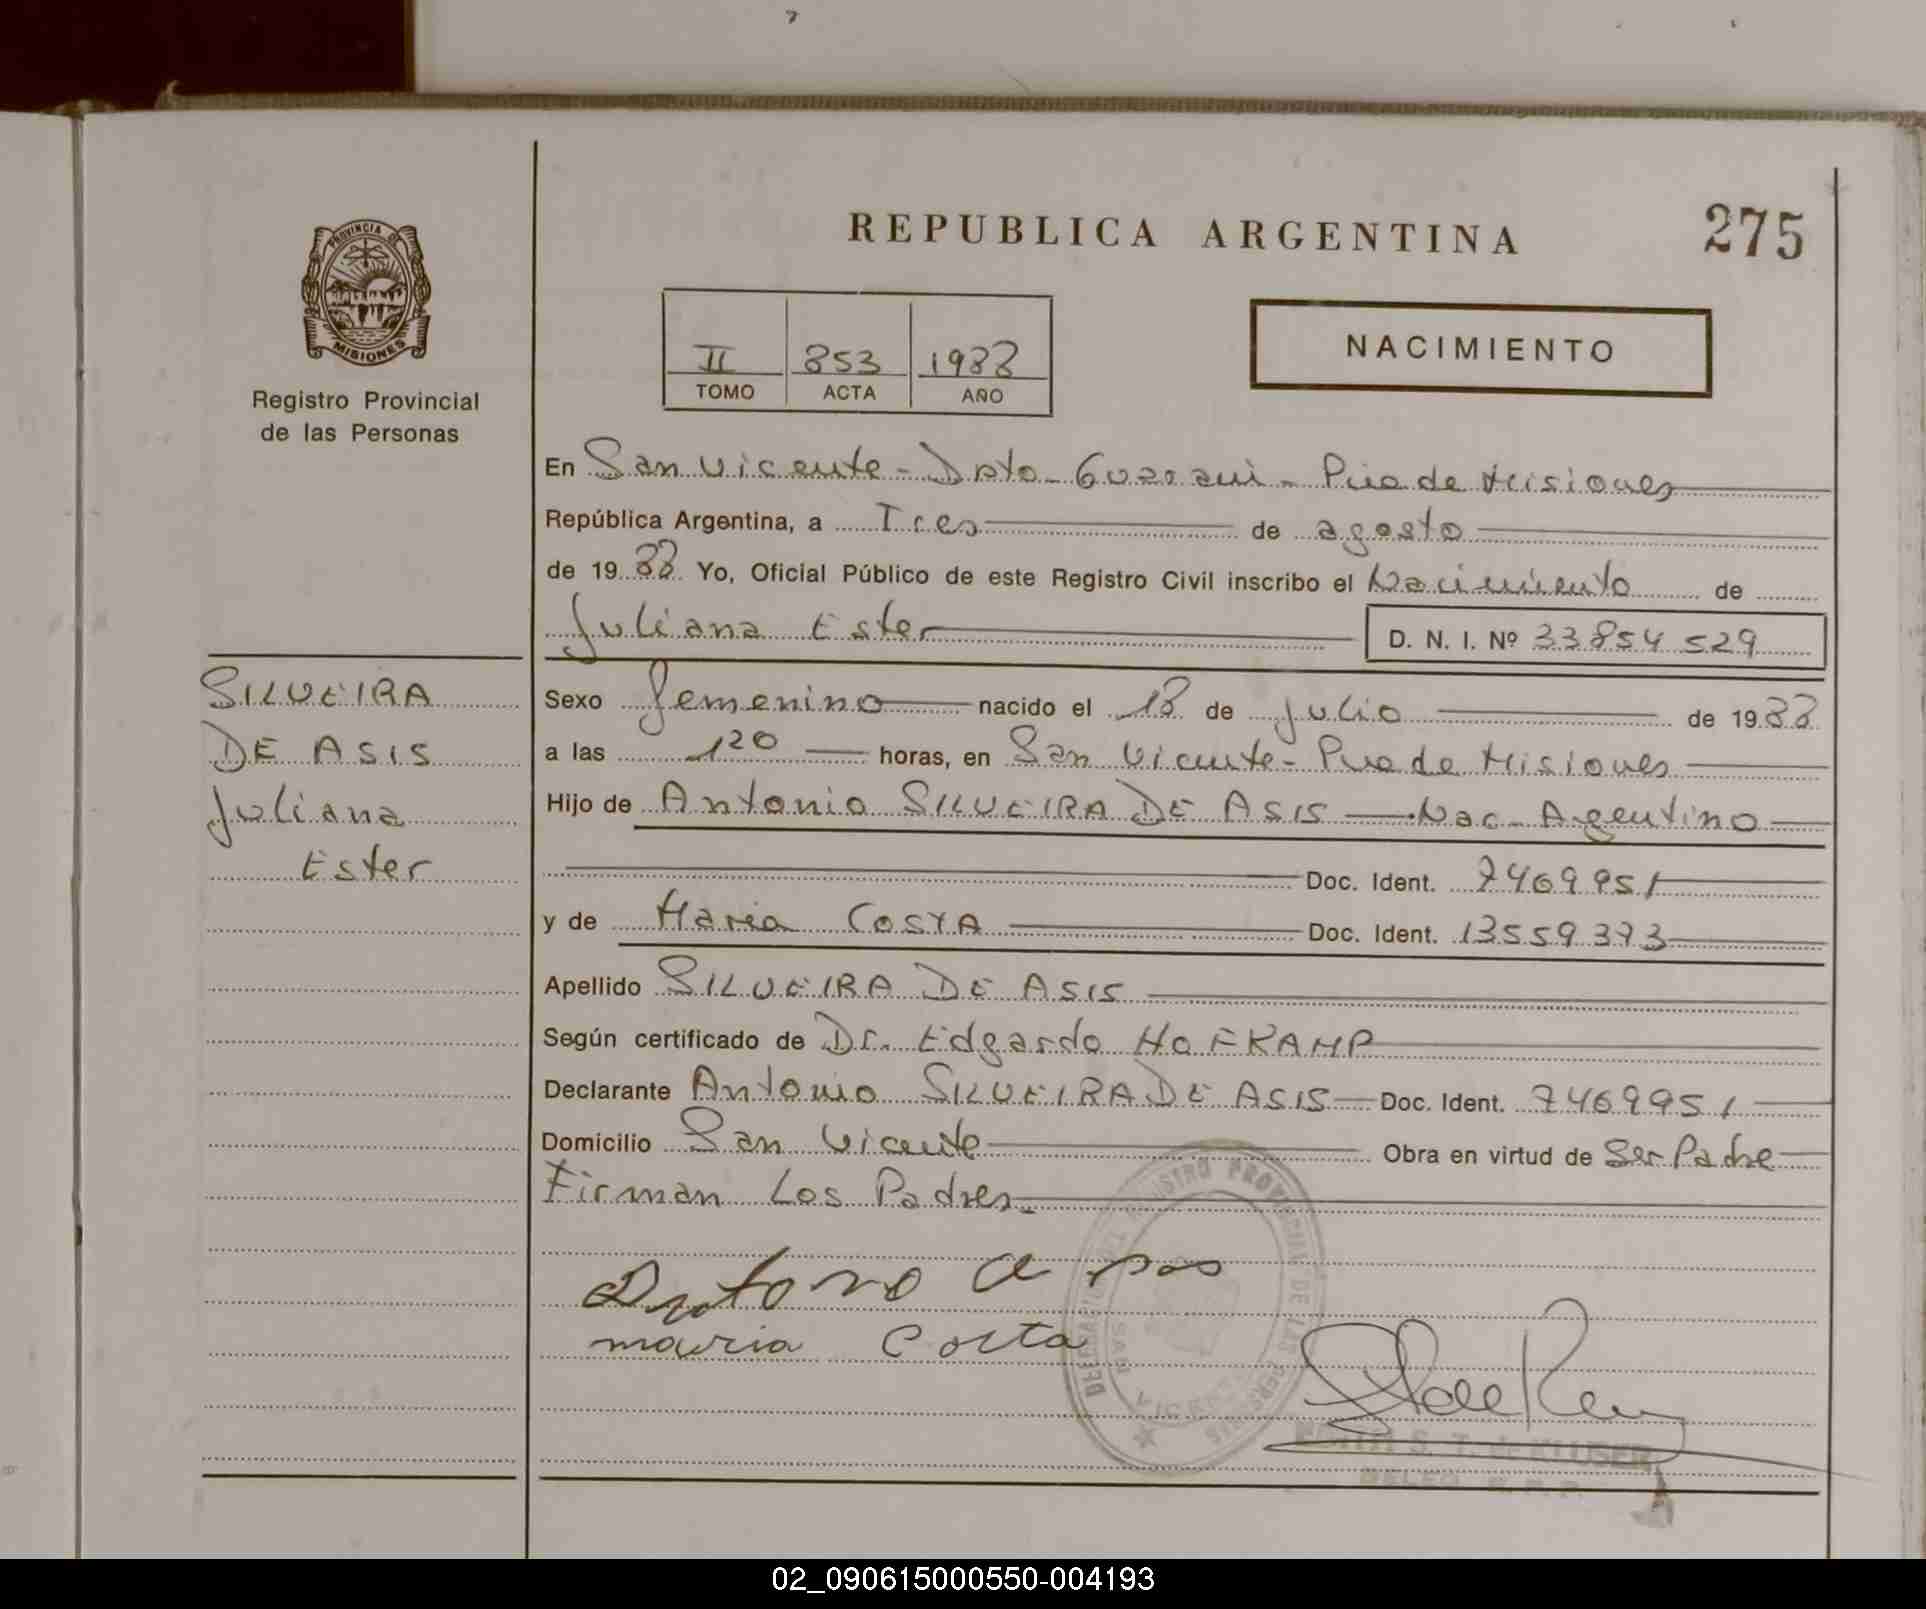 REPUBLICA ARGENTINA
275
PROVINCIA DE
MISIONES
Registro Provincial
de las Personas
II 853 1988
TOMO ACTA AÑO
NACIMIENTO
En San Vicente - Dpto - Guarani - Pcia de Misiones
República Argentina, a Tres de agosto
de 1988 Yo, Oficial Público de este Registro Civil inscribo el Nacimiento de
Juliana Ester D. N. I. Nº 33854529
SILVEIRA
DE ASIS
Juliana
Ester
Sexo femenino nacido el 18 de julio de 1988
a las 120 horas, en San Vicente - Pcia de Misiones
Hijo de Antonio SILVEIRA DE ASIS Nac- Argentino
Doc. Ident. 7469951
y de Maria COSTA Doc. Ident. 13559373
Apellido SILVEIRA DE ASIS
Según certificado de Dr. Edgardo HOFKAMP
Declarante Antonio SILVEIRA DE ASIS Doc. Ident. 7469951
Domicilio San Vicente Obra en virtud de Ser Padre
Firman Los Padres.
maria Costa
S. T. de KLUSER
02_090615000550-004193